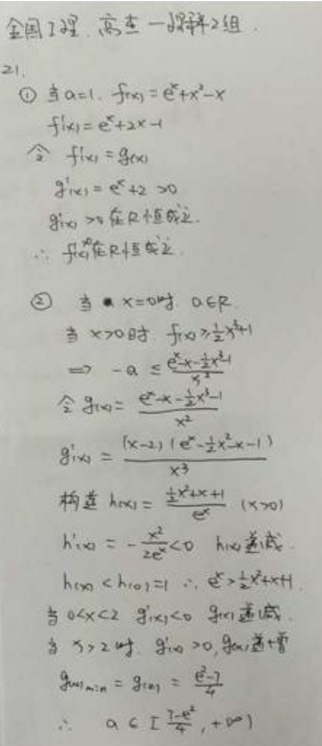 21.
① 当a=1. f(x)=eˣ+x²-x
f'(x)=eˣ+2x-1
令 f'(x)=g(x)
g'(x)=eˣ+2>0
在R恒成立.
∴ 在R恒成立
② 当 x=0时. a∈R.
当 x>0时 f(x)≥½x³+1
⟹ -a ≤ (eˣ-x-½x³-1)/x²
令 g(x)= (eˣ-x-½x³-1)/x²
g'(x)= (x-2)(eˣ-½x²-x-1)/x³
构造 h(x)= (½x²+x+1)/eˣ (x>0)
h'(x)= -x²/2eˣ<0 h(x)递减.
h(x)<h(0)=1 ∴ eˣ>½x²+x+1
当 0<x<2 g'(x)<0 g(x)递减.
当 x>2时. g'(x)>0, g(x)递增
g(x)min=g(2)= (e²-7)/4
∴ a∈[(7-e²)/4, +∞)